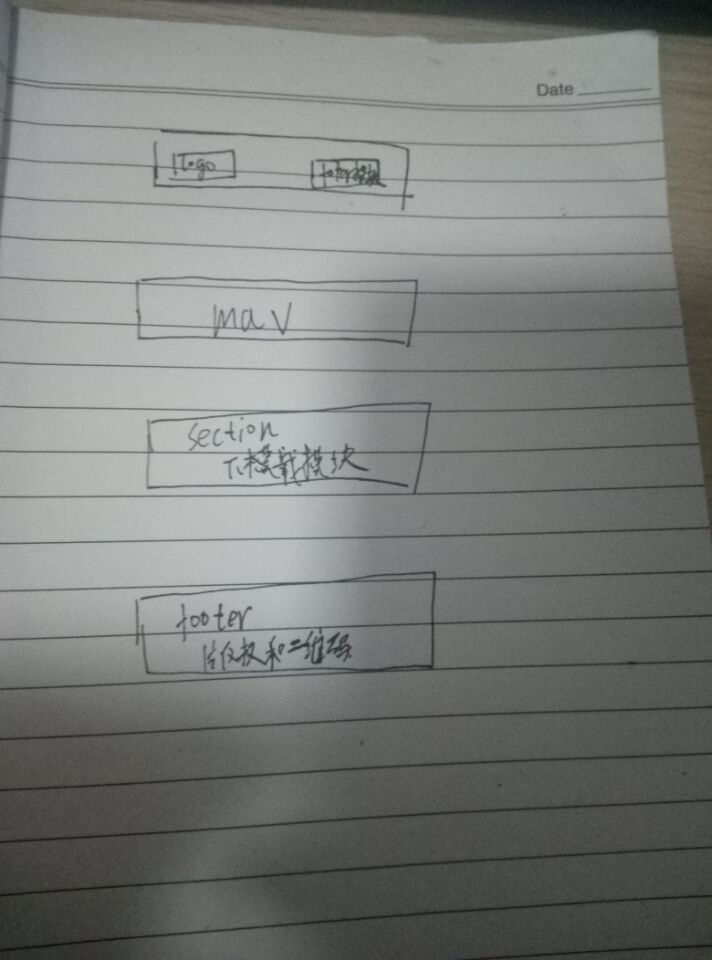 Date
logo
mav
section
下载模块
footer
版权和二维码